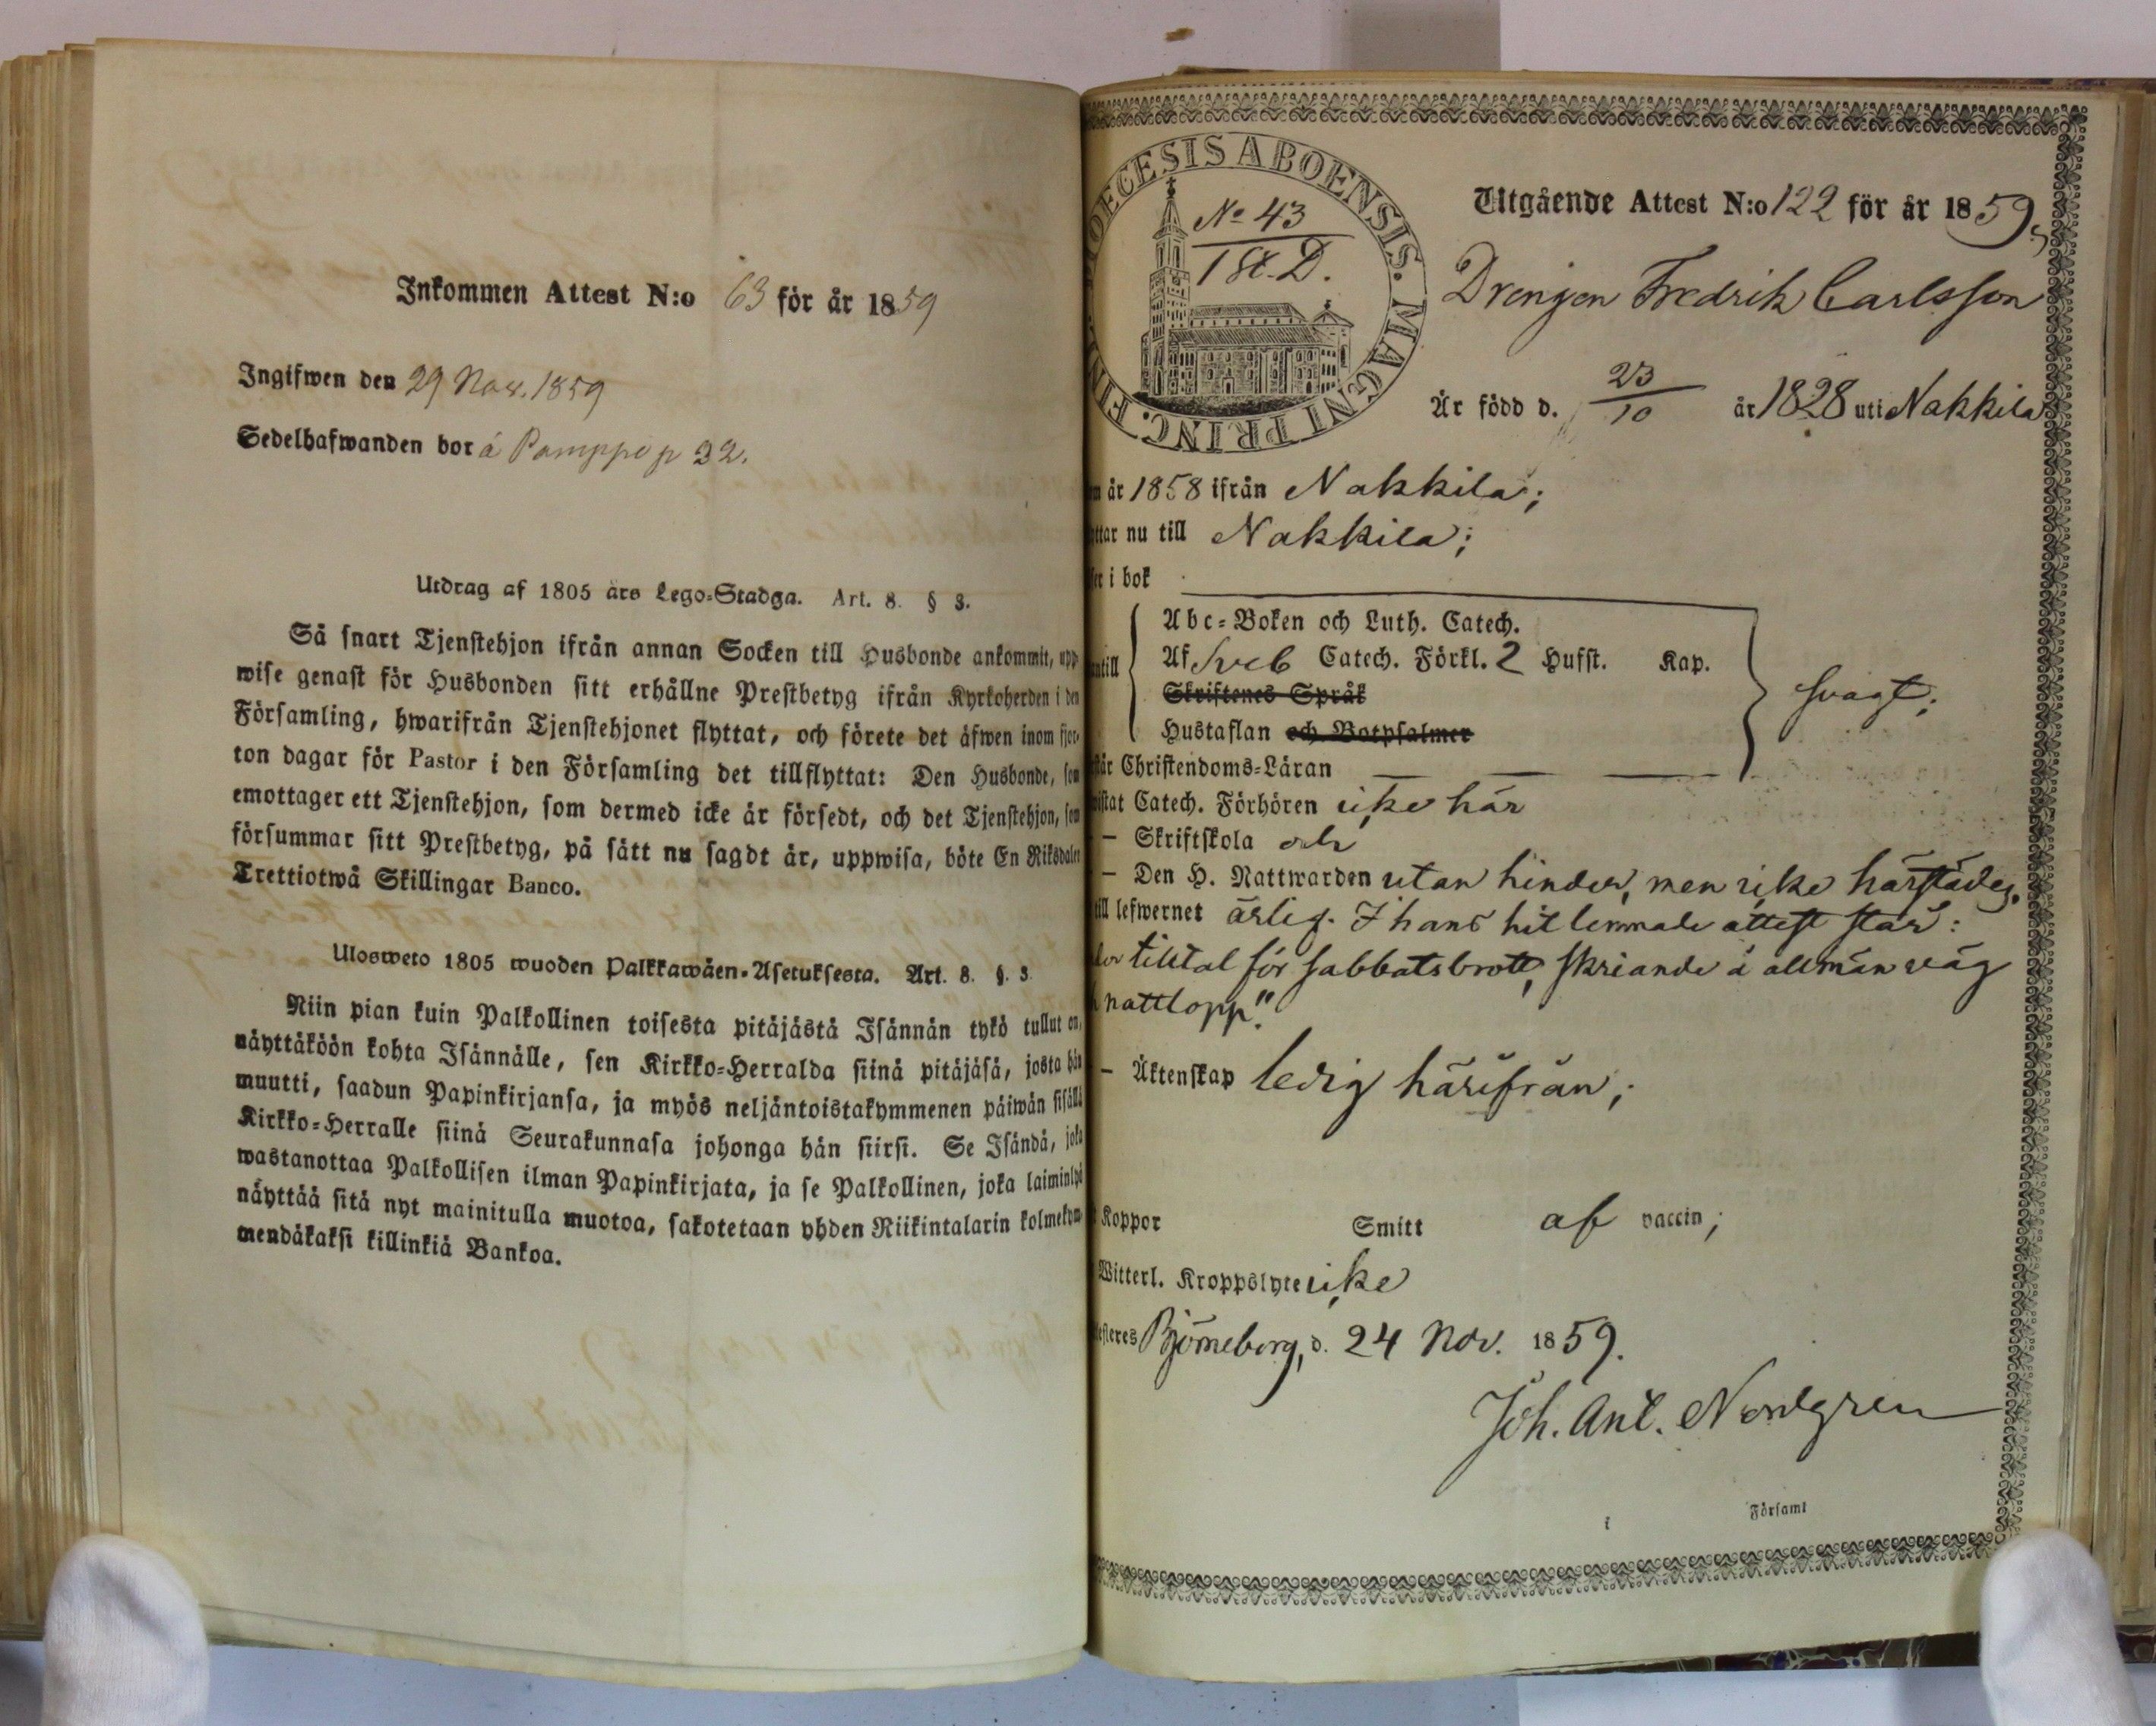 Inkommen Attest N:o 63 för år 1859
Ingifwen den 29 Nov. 1859
Sedelhafwanden bor å Pamppi p 32.
Utdrag af 1805 års Lego-Stadga. Art. 8. § 3.
Så snart Tjenstehjon ifrån annan Socken till Husbonde ankommit, upp
wise genast för Husbonden sitt erhållne Prestbetyg ifrån Kyrkoherden i den
Församling, hwarifrån Tjenstehjonet flyttat, och förete det äfwen inom fjor-
ton dagar för Pastor i den Församling det tillflyttat: Den Husbonde, som
emottager ett Tjenstehjon, som dermed icke är försedt, och det Tjenstehjon, som
försummar sitt Prestbetyg, på sätt nu sagdt är, uppwisa, böte En Riksdaler
Trettiotwå Skillingar Banco.
Ulosweto 1805 wuoden Palkkawäen-Asetuksesta. Art. 8. §. 3
Niin pian kuin Palkollinen toisesta pitäjästä Isännän tykö tullut on,
näyttäköön kohta Isännälle, sen Kirkko-Herralda siinä pitäjäsä, josta hän
muutti, saadun Papinkirjansa, ja myös neljäntoistakymmenen päiwän sisällä
Kirkko-Herralle siinä Seurakunnasa johonga hän siirsi. Se Isändä, joka
wastanottaa Palkollisen ilman Papinkirjata, ja se Palkollinen, joka laiminlyö
näyttää sitä nyt mainitulla muotoa, sakotetaan yhden Riikintalarin kolmekym-
mendäkaksi killinkiä Bankoa.
DIOECESIS ABOENSIS. MAGNI PRINC. FIN
No 43
1 St. D.
Utgående Attest N:o 122 för år 1859,
Drengen Fredrik Carlsson
Är född d. 23/10 år 1828 uti Nakkila
m år 1858 ifrån Nakkila;
ttar nu till Nakkila;
ser i bok
antill
Abc-Boken och Luth. Catech.
Af Sveb Catech. Förkl. 2 Hufst. Kap.
Skriftenes Språk
Hustaflan och Botpsalmer
svagt;
står Christendoms-Läran
wistat Catech. Förhören icke här
— Skriftskola och
— Den H. Nattwarden utan hinder, men icke härstädes.
till lefwernet ärlig. I hans hit lemnade attest står:
tilltal för sabbatsbrott, skriande å allmän väg
nattlopp."
— Äktenskap ledig härifrån;
Koppor Smitt af vaccin;
Witterl. Kroppslyte icke
esteres Björneborg, d. 24 Nov. 1859.
Joh. Ant. Nordgren
i Församl